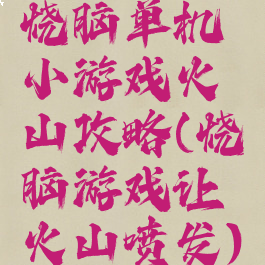 烧脑单机
小游戏火
山攻略(烧
脑游戏让
火山喷发)